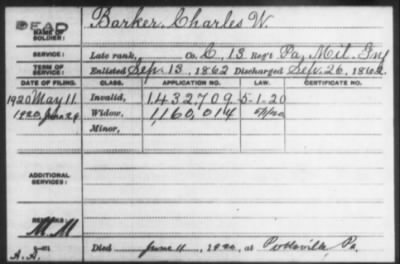 DEAD
NAME OF SOLDIER: Barker, Charles W.
SERVICE: Late rank, Co. C, 13 Reg't Pa. Mil. Inf
TERM OF SERVICE: Enlisted Sep. 13, 1862 Discharged Sep. 26, 1862
DATE OF FILING. CLASS. APPLICATION NO. LAW. CERTIFICATE NO.
1920 May 11 Invalid, 1,432,709 5-1-20
1920, June 29 Widow, 1,160,014 5/1/20
Minor,
ADDITIONAL SERVICES:
REMARKS:
M M
Died June 11, 1920, at Pottsville, Pa.
A.A.